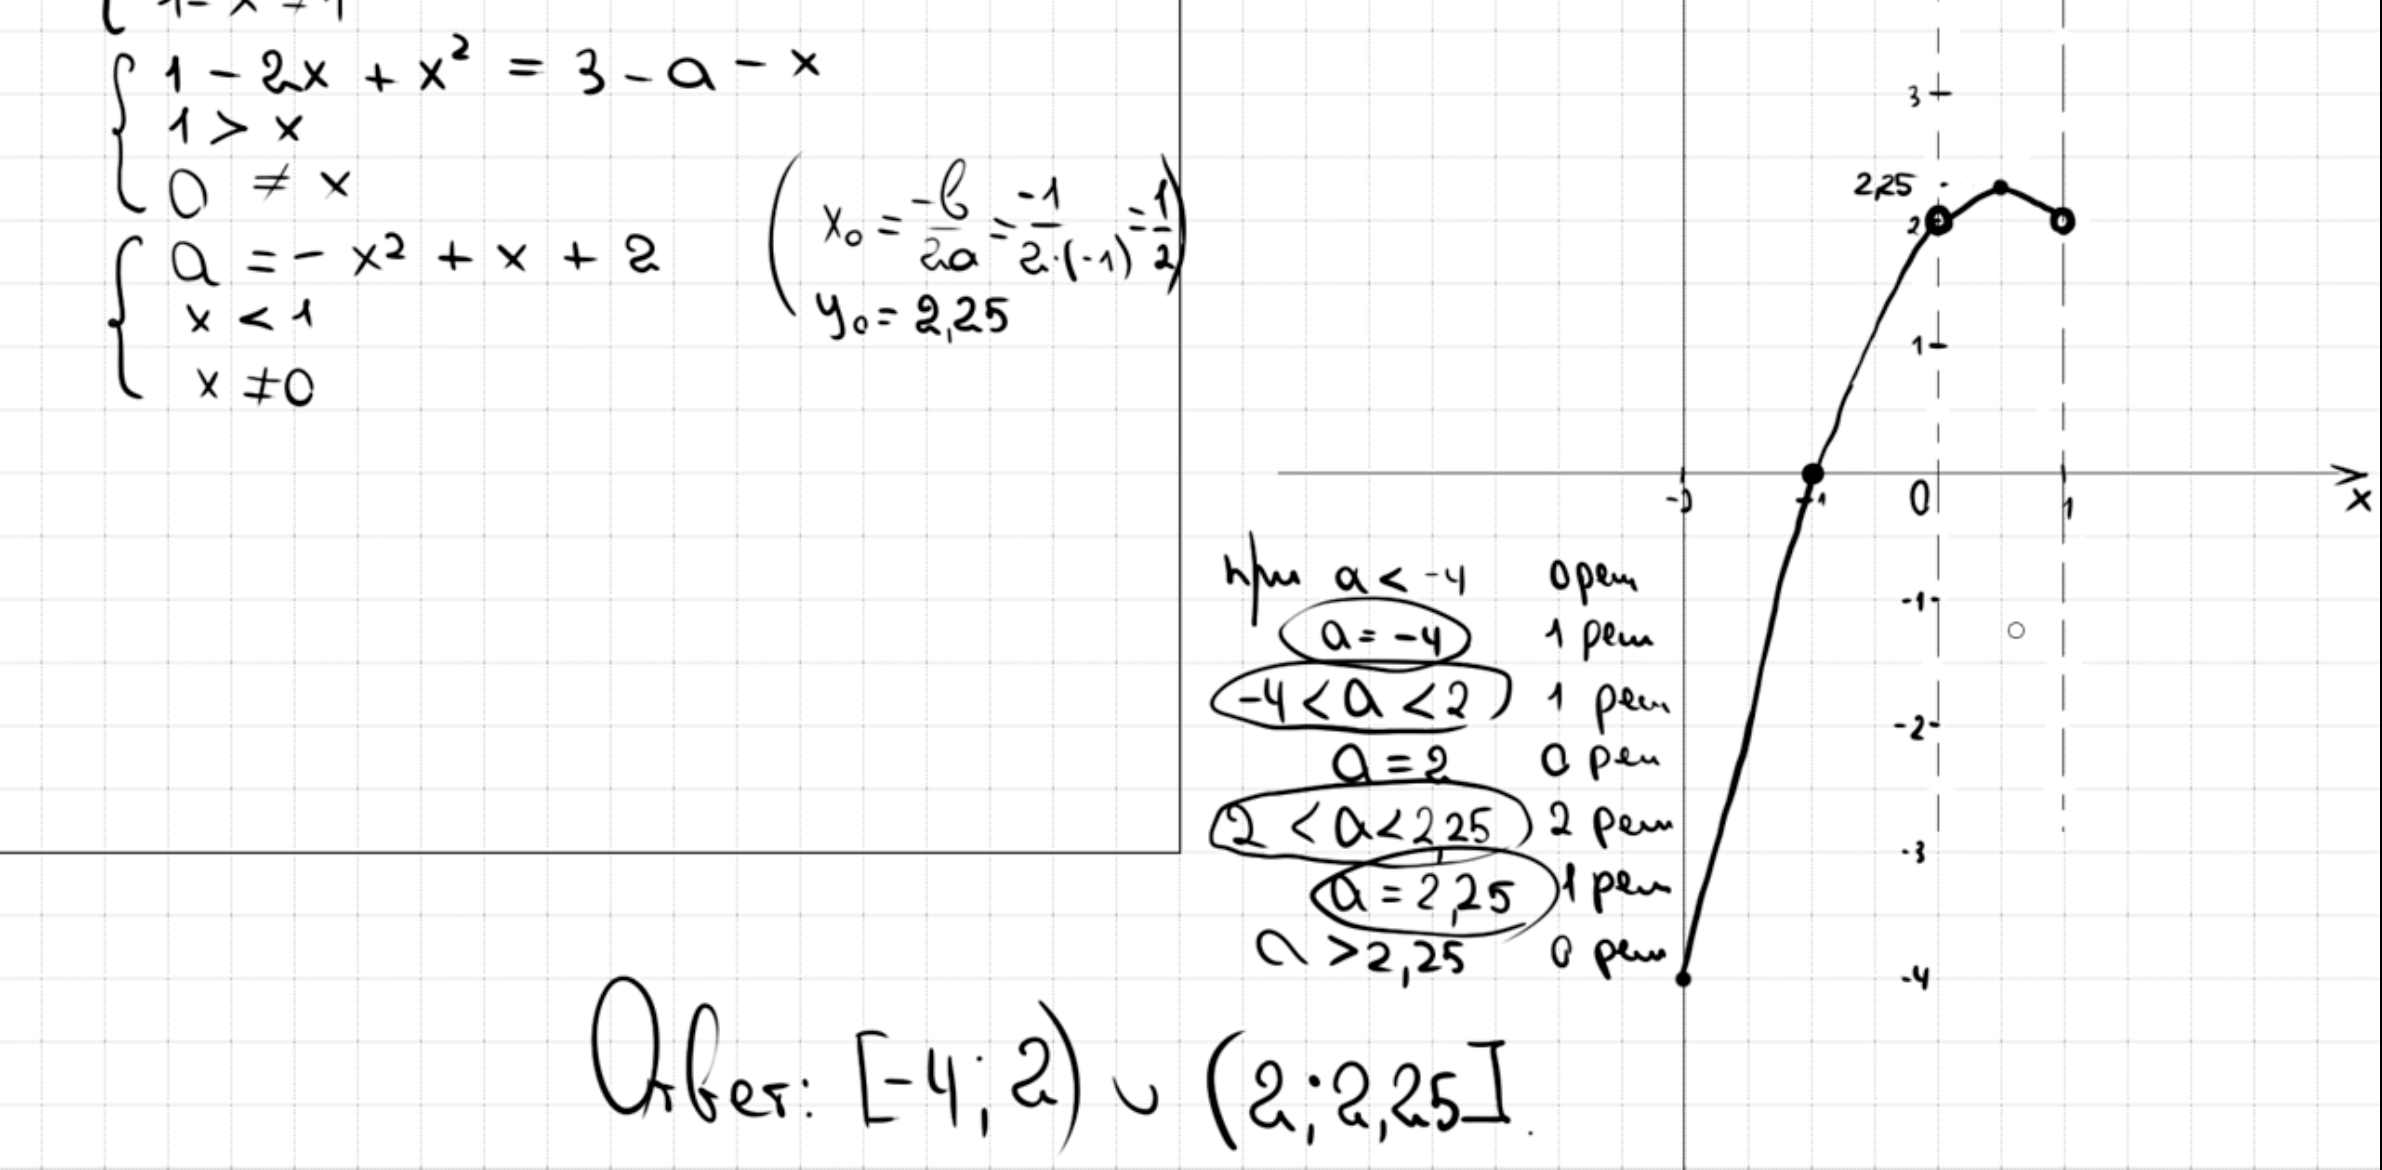 1 - 2x + x² = 3 - a - x
1 > x
0 ≠ x
a = - x² + x + 2
x < 1
x ≠ 0
x₀ = -b/2a = -1/2·(-1) = 1/2
y₀ = 2,25
3
2,25
2
1
-1
0
1
x
-1
-2
-3
-4
при a < -4 0 реш
a = -4 1 реш
-4 < a < 2 1 реш
a = 2 0 реш
2 < a < 2,25 2 реш
a = 2,25 1 реш
a > 2,25 0 реш
Ответ: [-4; 2) ∪ (2; 2,25].